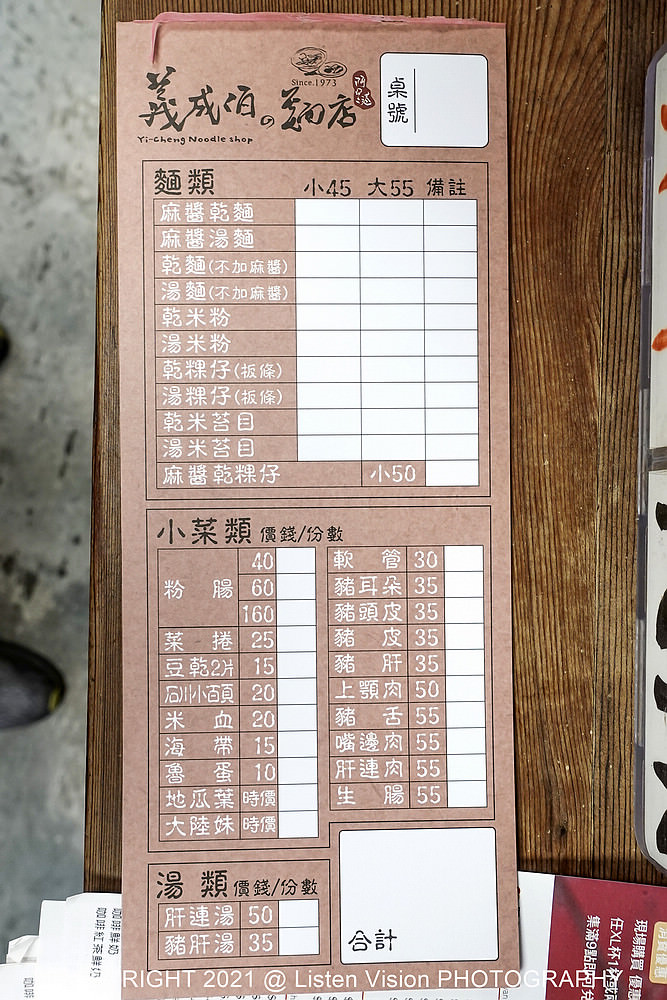 Since.1973
義成伯の麵店
Yi-Cheng Noodle shop
桌號
麵類 小45 大55 備註
麻醬乾麵
麻醬湯麵
乾麵(不加麻醬)
湯麵(不加麻醬)
乾米粉
湯米粉
乾粿仔(板條)
湯粿仔(板條)
乾米苔目
湯米苔目
麻醬乾粿仔 小50
小菜類 價錢/份數
粉腸 40
60
160
菜捲 25
豆乾2片 15
石川小百頁 20
米血 20
海帶 15
魯蛋 10
地瓜葉 時價
大陸妹 時價
軟管 30
豬耳朵 35
豬頭皮 35
豬皮 35
豬肝 35
上顎肉 50
豬舌 55
嘴邊肉 55
肝連肉 55
生腸 55
湯類 價錢/份數
肝連湯 50
豬肝湯 35
合計
咖啡鮮奶
咖啡紅茶鮮奶
現場購買 優
任XL杯
集滿9點
RIGHT 2021 @ Listen Vision PHOTOGRAPH